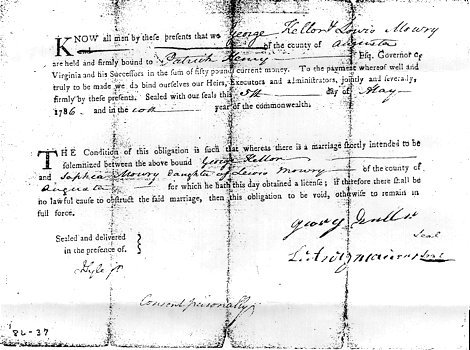 KNOW all men by these presents that we George Kellor & Lewis Mowry
and of the county of Augusta
are held and firmly bound to Patrick Henry Esq. Governor of
Virginia and his Successors in the sum of fifty pounds current money. To the payment whereof well and
truly to be made we do bind ourselves our Heirs, Executors and administrators, jointly and severally,
firmly by these presents. Sealed with our seals this 8th day of May
1786. and in the 10th year of the commonwealth.
THE Condition of this obligation is such that whereas there is a marriage shortly intended to be
solemnized between the above bound George Kellor
and Sophia Mowry daughter of Lewis Mowry of the county of
Augusta for which he hath this day obtained a license; if therefore there shall be
no lawful cause to obstruct the said marriage, then this obligation to be void, otherwise to remain in
full force.
Georg
Seal
Sealed and delivered
in the presence of.
Seal
Consent personally
86-37